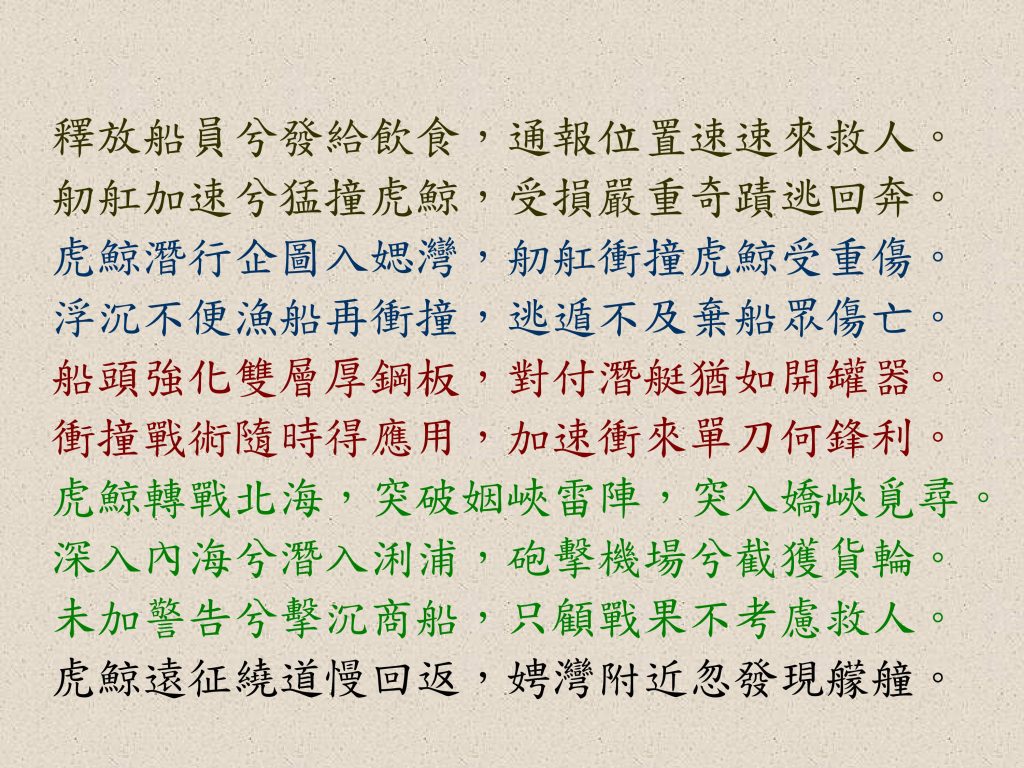 釋放船員兮發給飲食，通報位置速速來救人。
舠舡加速兮猛撞虎鯨，受損嚴重奇蹟逃回奔。
虎鯨潛行企圖入媤灣，舠舡衝撞虎鯨受重傷。
浮沉不便漁船再衝撞，逃遁不及棄船眾傷亡。
船頭強化雙層厚鋼板，對付潛艇猶如開罐器。
衝撞戰術隨時得應用，加速衝來單刀何鋒利。
虎鯨轉戰北海，突破姻峽雷陣，突入嬌峽覓尋。
深入內海兮潛入浰浦，砲擊機場兮截獲貨輪。
未加警告兮擊沉商船，只顧戰果不考慮救人。
虎鯨遠征繞道慢回返，娉灣附近忽發現艨艟。